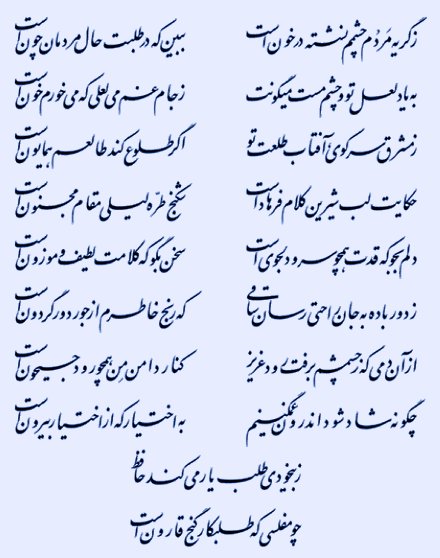 ز گریه مردم چشم نشسته در خون است ببین که در طلبت حال مردمان چون است
به یاد لعل تو و چشم مست میگونت ز جام غم می لعلی که می‌خورم خون است
ز مشرق سر کوی آفتاب طلعت تو اگر طلوع کند طالعم همایون است
حکایت لب شیرین کلام فرهاد است شکنج طره لیلی مقام مجنون است
دلم بجو که قدت همچو سرو دلجوی است سخن بگو که کلامت لطیف و موزون است
ز دور باده به جان راحتی رسان ساقی که رنج خاطرم از جور دور گردون است
از آن دمی که ز چشمم برفت رود عزیز کنار دامن من همچو رود جیحون است
چگونه شاد شود اندرون غمگینم به اختیار که از اختیار بیرون است
ز بیخودی طلب یار می‌کند حافظ
چو مفلسی که طلبکار گنج قارون است